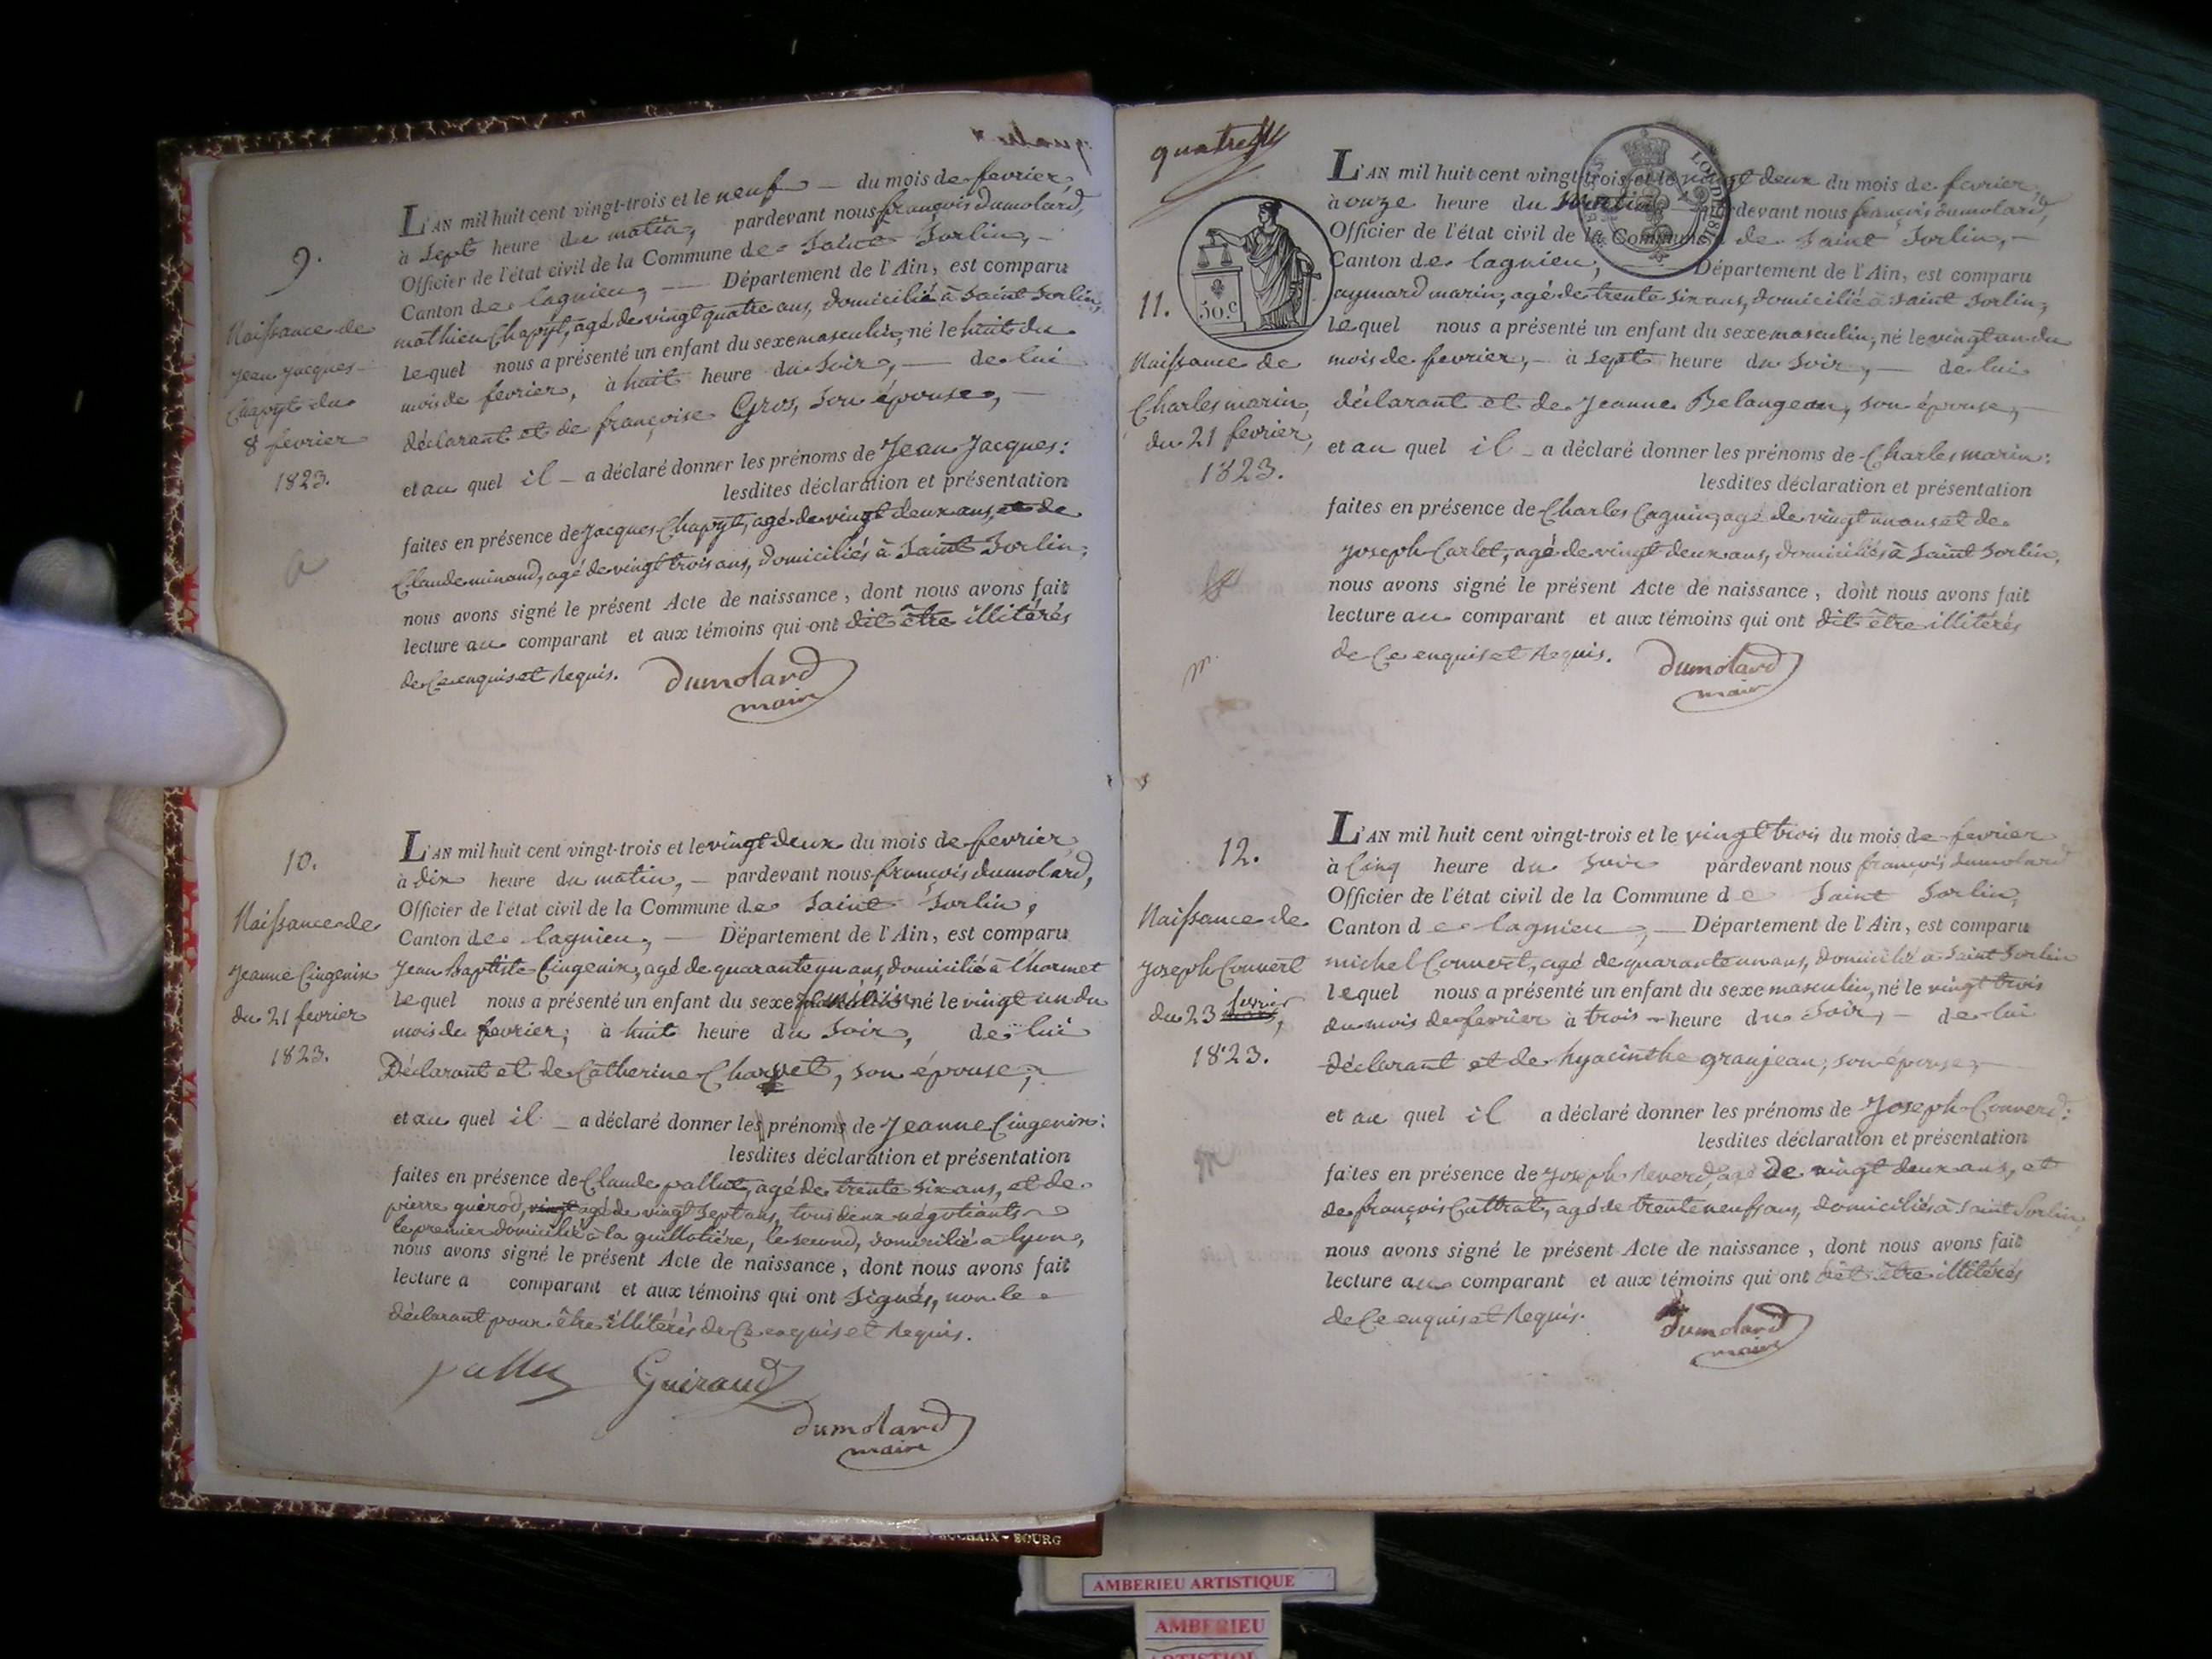 9.
Naissance de
Jean Jacques
Chapÿt du
8 fevrier
1823.
L'AN mil huit cent vingt-trois et le neuf — du mois de fevrier,
à Sept heure du matin, pardevant nous françois dumolard,
Officier de l'état civil de la Commune de Saint Sorlin, —
Canton de lagnieu, — Département de l'Ain, est comparu
mathieu Chapÿt, agé de vingt quatre ans, domicilié à Saint Sorlin,
Lequel nous a présenté un enfant du sexe masculin, né le huit du
mois de fevrier, à huit heure du Soir, — de lui
déclarant et de françoise Gros, son épouse, —
et au quel il — a déclaré donner les prénoms de Jean Jacques:
lesdites déclaration et présentation
faites en présence de Jacques Chapÿt, agé de vingt deux ans, et de
Claude minand, agé de vingt trois ans, domiciliés à Saint Sorlin,
nous avons signé le présent Acte de naissance, dont nous avons fait
lecture au comparant et aux témoins qui ont dit être illitérés
de Ce enquis et Requis. Dumolard
maire
10.
Naissance de
Jeanne Cingenix
du 21 fevrier
1823.
L'AN mil huit cent vingt-trois et le vingt deux du mois de fevrier,
à dix heure du matin, — pardevant nous françois dumolard,
Officier de l'état civil de la Commune de Saint Sorlin,
Canton de lagnieu, — Département de l'Ain, est comparu
Jean Baptiste Cingenix, agé de quarante un ans, domicilié à Chormet
Lequel nous a présenté un enfant du sexe feminin né le vingt un du
mois de fevrier, à huit heure du Soir, de lui
Déclarant et de Catherine Charvet, son épouse, —
et au quel il — a déclaré donner les prénoms de Jeanne Cingenix:
lesdites déclaration et présentation
faites en présence de Claude pallut, agé de trente six ans, et de
pierre guérod, vingt agé de vingt Sept ans, tous deux négotiants
le premier domicilié à la guillotiére, le second, domicilié a lyon,
nous avons signé le présent Acte de naissance, dont nous avons fait
lecture a comparant et aux témoins qui ont Signés, non le
déclarant pour être illitérés de Ce enquis et Requis.
pallu Guiraud
Dumolard
maire
quatre
11.
50. C
Naissance de
Charles marin,
du 21 fevrier,
1823.
L'AN mil huit cent vingt-trois et le vingt deux du mois de fevrier,
à onze heure du matin pardevant nous françois dumolard,
Officier de l'état civil de la Commune de Saint Sorlin, —
Canton de lagnieu, — Département de l'Ain, est comparu
aymard marin, agé de trente six ans, domicilié à saint sorlin,
Lequel nous a présenté un enfant du sexe masculin, né le vingt un du
mois de fevrier, — à Sept heure du Soir, — de lui
déclarant et de Jeanne Belangeon, son épouse, —
et au quel il — a déclaré donner les prénoms de Charles marin:
lesdites déclaration et présentation
faites en présence de Charles Cagnin, agé de vingt un ans et de
Joseph Carlet, agé de vingt deux ans, domiciliés à Saint Sorlin,
nous avons signé le présent Acte de naissance, dont nous avons fait
lecture au comparant et aux témoins qui ont dit être illitérés
de Ce enquis et Requis. Dumolard
maire
12.
Naissance de
Joseph Couvert
du 23 fevrier,
1823.
L'AN mil huit cent vingt-trois et le vingt trois du mois de fevrier
à Cinq heure du Soir pardevant nous françois dumolard
Officier de l'état civil de la Commune de Saint Sorlin,
Canton de lagnieu, — Département de l'Ain, est comparu
michel Couvert, agé de quarante un ans, domicilié a Saint Sorlin
lequel nous a présenté un enfant du sexe masculin, né le vingt trois
du mois de fevrier à trois — heure du Soir, — de lui
déclarant et de hyacinthe granjean, son épouse, —
et au quel il a déclaré donner les prénoms de Joseph Couverd:
lesdites déclaration et présentation
faites en présence de Joseph Reverd, agé De vingt deux ans, et
de françois Cuttrat, agé de trente neuf ans, domiciliés à Saint Sorlin,
nous avons signé le présent Acte de naissance, dont nous avons fait
lecture au comparant et aux témoins qui ont dit être illitérés
de Ce enquis et Requis. Dumolard
maire
BOURG
AMBERIEU ARTISTIQUE
AMBERIEU